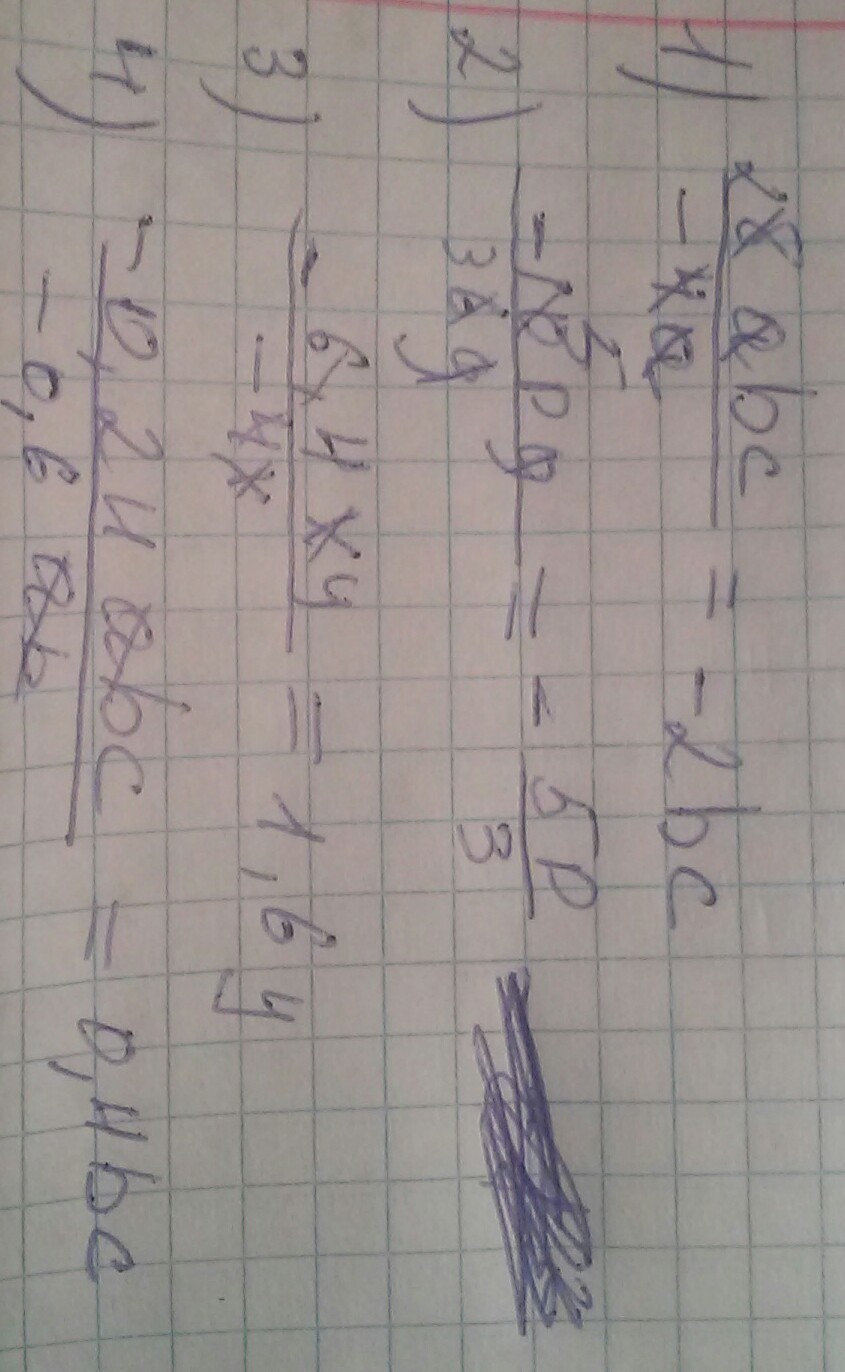 1) 28abc / -4a = -2bc
2) -10 5 pq / 3 6q = - 5p / 3
3) -6,4xy / -4x = 1,6y
4) -0,24abc / -0,6ab = 0,4bc